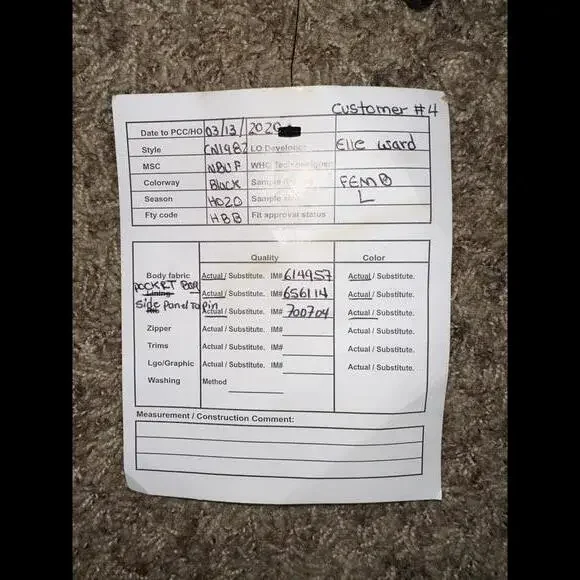 Customer #4
Date to PCC/HO 03/13/2020
Style CN1982 LO Developer Elle Ward
MSC NBUF WHQ Tech designer
Colorway Black Sample FEM B
Season HO20 Sample size L
Fty code HBB Fit approval status
Quality Color
Body fabric Actual / Substitute. IM# 614957 Actual / Substitute.
POCKET BAG
Lining Actual / Substitute. IM# 656114 Actual / Substitute.
side Panel Tapin Actual / Substitute. IM# 700704 Actual / Substitute.
Zipper Actual / Substitute. IM# Actual / Substitute.
Trims Actual / Substitute. IM# Actual / Substitute.
Lgo/Graphic Actual / Substitute. IM# Actual / Substitute.
Washing Method
Measurement / Construction Comment: